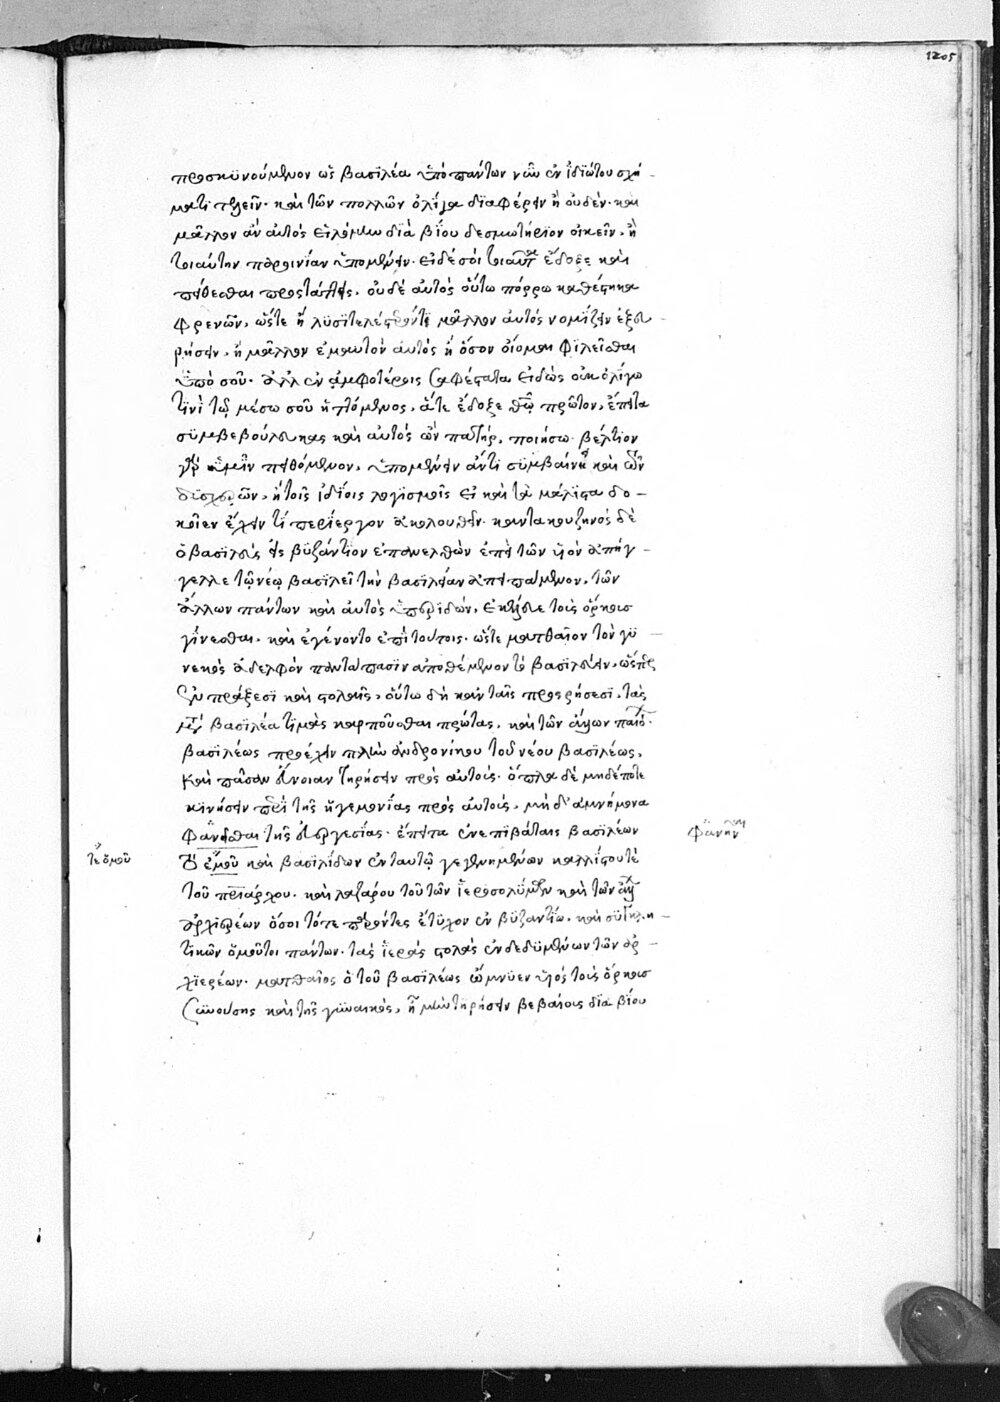 1205
προσκυνούμενον ὡς βασιλέα ὑπὸ πάντων νῦν ἐν ἰδιώτου σχή-
ματι τελεῖν· καὶ τῶν πολλῶν ὀλίγα διαφέρειν ἢ οὐδέν· καὶ
μᾶλλον ἂν αὐτὸς εἱλόμην διὰ βίου δεσμωτήριον οἰκεῖν, ἢ
τοιαύτην παροινίαν ὑπομένειν· εἰ δέ σοι τοιαῦτα ἔδοξε καὶ
πείθεσθαι προστάττεις, οὐδὲ αὐτὸς οὕτω πόρρω καθέστηκα
φρενῶν, ὥστε ἢ λυσιτελέστερόν τι μᾶλλον αὐτὸς νομίζειν ἐξευ-
ρήσειν, ἢ μᾶλλον ἐμαυτὸν αὐτὸς ἢ ὅσον οἴομαι φιλεῖσθαι
ὑπὸ σοῦ· ἀλλ' ἐν ἀμφοτέροις σαφέστατα εἰδὼς οὐκ ὀλίγω
τινὶ τῷ μέσω σου ἡττόμενος, ἅτε ἔδοξε θεῷ πρῶτον, ἔπειτα
συμβεβούλευκας καὶ αὐτὸς ὢν πατὴρ, ποιήσω· βέλτιον
γὰρ ὑμῖν πειθόμενον, ὑπομένειν ἄντι συμβαίνη καὶ τῶν
δυσχερῶν, ἢ τοῖς ἰδίοις λογισμοῖς εἰ καὶ τὰ μάλιστα δο-
κοῖεν ἔχειν τὶ περίεργον ἀκολουθεῖν· καντακουζηνὸς δὲ
ὁ βασιλεὺς εἰς βυζάντιον ἐπανελθὼν ἐπεὶ τὸν υἱὸν ἀπήγ-
γελλε τῷ νέῳ βασιλεῖ τὴν βασιλείαν ἀπειπάμενον, τῶν
ἄλλων πάντων καὶ αὐτὸς ὑπεριδών, ἐκέλευε τοὺς ὅρκους
γίνεσθαι· καὶ ἐγένοντο ἐπὶ τούτοις· ὥστε ματθαῖον τὸν γυ-
ναικὸς ἀδελφὸν παντάπασιν ἀποθέμενον τὸ βασιλεύειν, ὥσπερ
ἐν πράξεσι καὶ στολαῖς, οὕτω δὴ καὶ ταῖς προσρήσεσι, τὰς
μετὰ βασιλέα τιμὰς καρποῦσθαι πρώτας, καὶ τῶν ἄλλων παίδων
βασιλέως προέχειν πλὴν ἀνδρονίκου τοῦ νέου βασιλέως,
καὶ πᾶσαν εὔνοιαν τηρήσειν πρὸς αὐτοὺς· ὅπλα δὲ μηδέποτε
κινήσειν περὶ τῆς ἡγεμονίας πρὸς αὐτοὺς, μὴ δ' ἀμνήμονα
φανεῖσθαι τῆς εὐεργεσίας· ἔπειτα ἐν ἐπιβάταις βασιλέων
τοῦ ἐμοῦ καὶ βασιλίδων ἐν ταυτῷ γεγενημένων καλλίστου τὲ
τοῦ πατριάρχου· καὶ λαζάρου τοῦ τῶν ἱεροσολύμων καὶ τῶν ἄλλων
ἀρχιερέων ὅσοι τότε παρόντες ἔτυχον ἐν βυζαντίω, καὶ συγκλη-
τικῶν ὁμοῦ τοι πάντων· τὰς ἱερὰς στολὰς ἐνδεδυμένων τῶν ἀρ-
χιερέων· ματθαῖος ὁ τοῦ βασιλέως ὤμνυεν υἱὸς τοὺς ὅρκους
συνούσης καὶ τῆς γυναικὸς, ἦ μὴν τηρήσειν βεβαίους διὰ βίου
τε ὁμοῦ